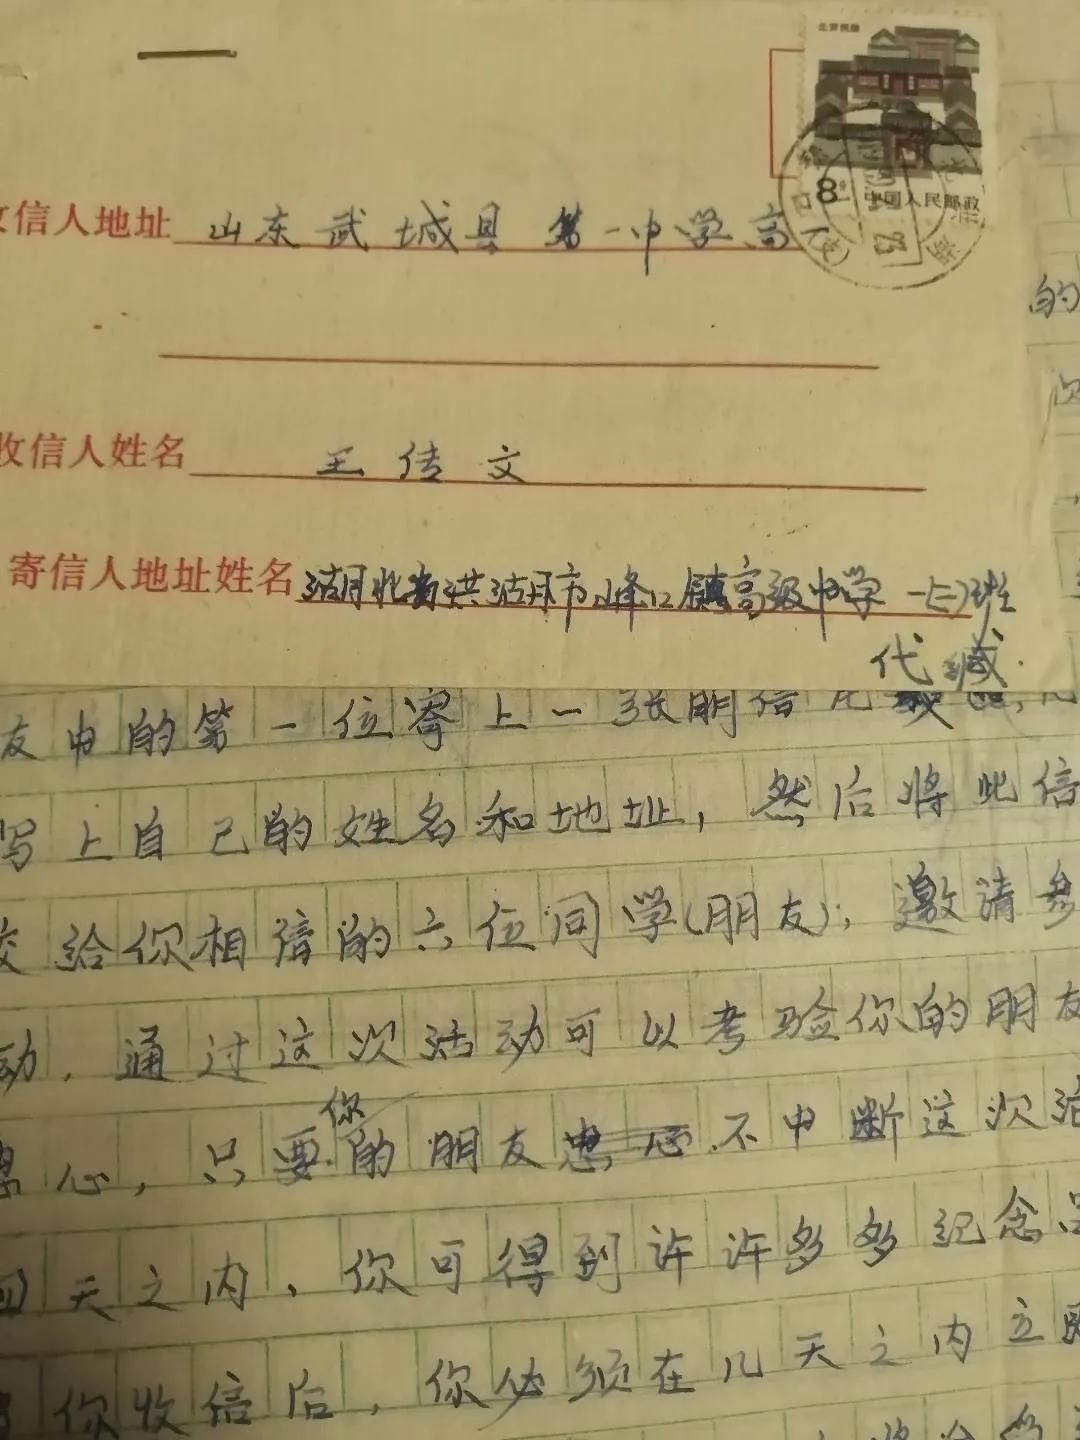 北京民居
8分 中国人民邮政
收信人地址 山东武城县第一中学高
收信人姓名 王传文
寄信人地址姓名 湖北省洪湖市峰口镇高级中学一(二)班
代 缄
的
次
友中的第一位寄上一张明信片
写上自己的姓名和地址，然后将此信
交给你相信的六位同学(朋友)，邀请参
动．通过这次活动可以考验你的朋友
忠心，只要你的朋友不中断这次活
四天之内，你可得到许许多多纪念品
你收信后，你必须在几天之内立即